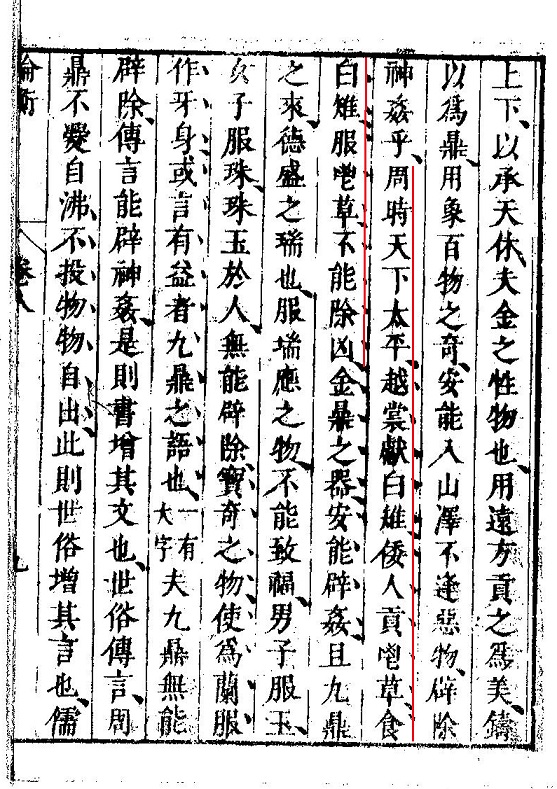 上下、以承天休、夫金之性物也、用遠方貢之爲美、鑄
以爲鼎、用象百物之奇、安能入山澤不逢惡物、辟除
神姦乎、周時天下太平、越裳獻白雉、倭人貢鬯草、食
白雉、服鬯草、不能除凶、金鼎之器、安能辟姦、且九鼎
之來、德盛之瑞也、服瑞應之物、不能致福、男子服玉、
女子服珠、珠玉於人、無能辟除、寶奇之物、使爲蘭服、
作牙身、或言有益者、九鼎之語也、一有大字夫九鼎無能
辟除、傳言能辟神姦、是則書增其文也、世俗傳言、周
鼎不爨自沸、不投物、物自出、此則世俗增其言也、儒
論衡 卷八 九